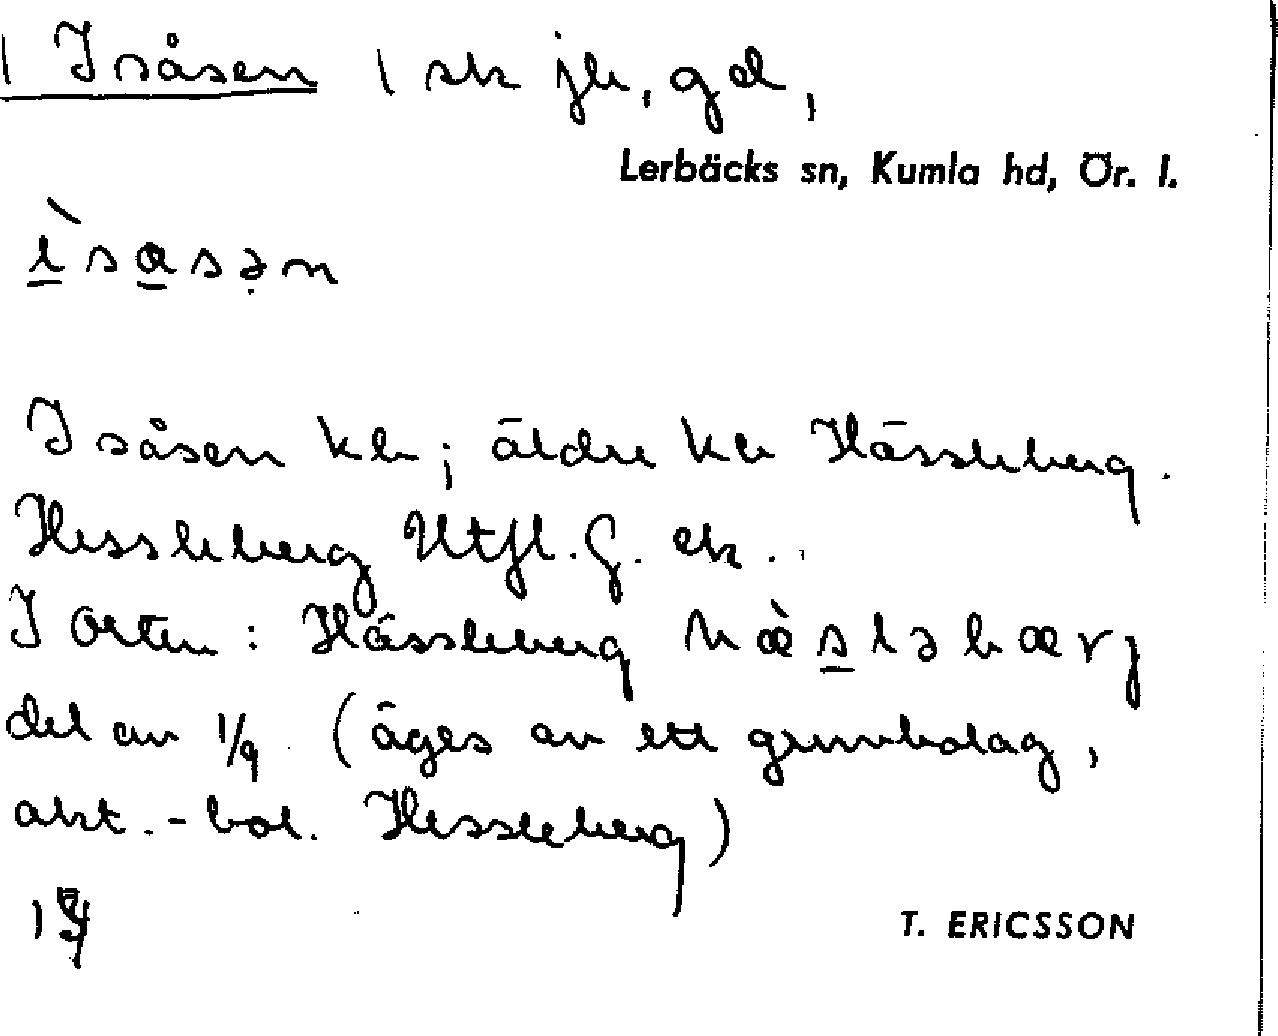 Isåsen 1 sk jb, gd,
Lerbäcks sn, Kumla hd, Ör. l.
ìsasən
Isåsen kb; äldre kb Hässleberg.
Hessleberg Utfl. G. ek.
I orten: Hässleberg hæ̀sləbærj
del av 1/9 (äges av ett gruvbolag,
akt.-bol. Hessleberg)
T. ERICSSON